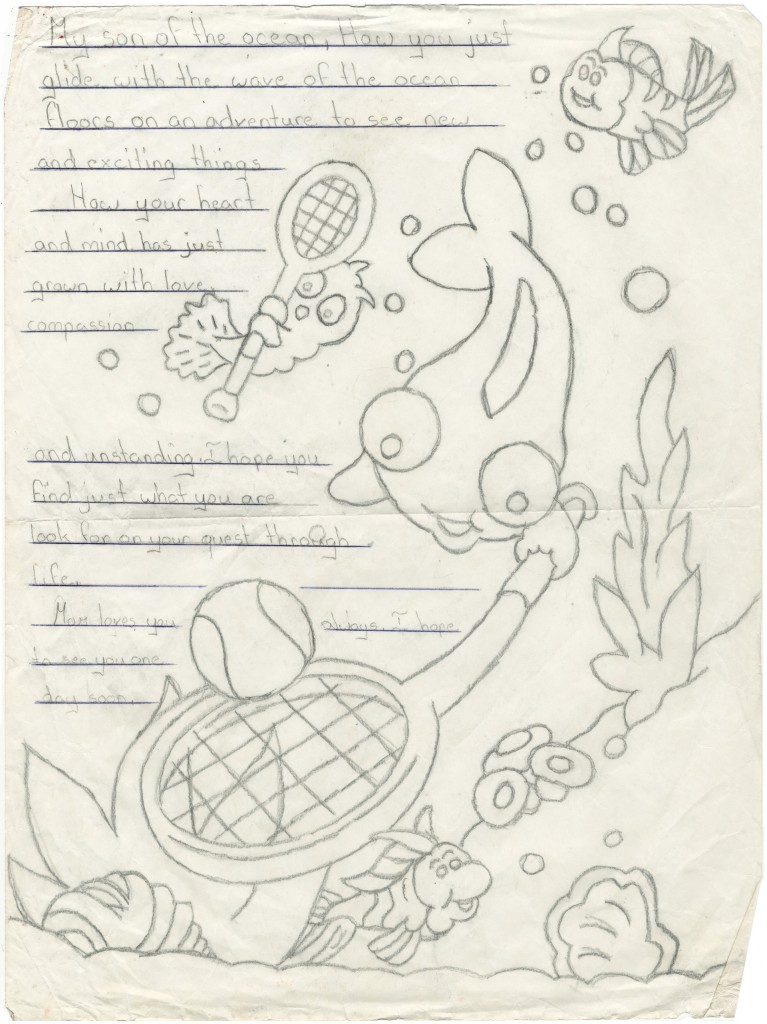 My son of the ocean, How you just
glide with the wave of the ocean
floors on an adventure to see new
and exciting things
How your heart
and mind has just
grown with love,
compassion
and unstanding. I hope you
find just what you are
look for on your quest through
life.
Mom loves you always. I hope
to see you one
day soon.